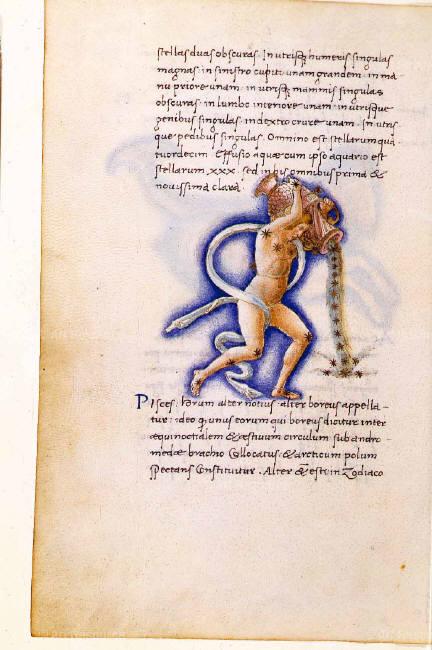 stellas duas obscuras. In utrisq; humeris singulas
magnas. in sinistro cubito unam grandem. in ma
nu priore unam. in utrisq; mammis singulas
obscuras. in lumbo interiore unam. in utrisque
genibus singulas. in dextro crure unam. In utris
que pedibus singulas. Omnino est stellarum qua
tuordecim. Effusio aquæ cum ipso aquario est
stellarum .xxx. sed in his omnibus prima &
nouissima clara.
Pisces. horum alter notius alter boreus appella-
tur: ideo q unus eorum qui boreus dicitur inter
æquinoctialem & æstiuum circulum sub andro
medæ brachio Collocatus: & arcticum polum
spectans Constituitur. Alter in Zodiaco